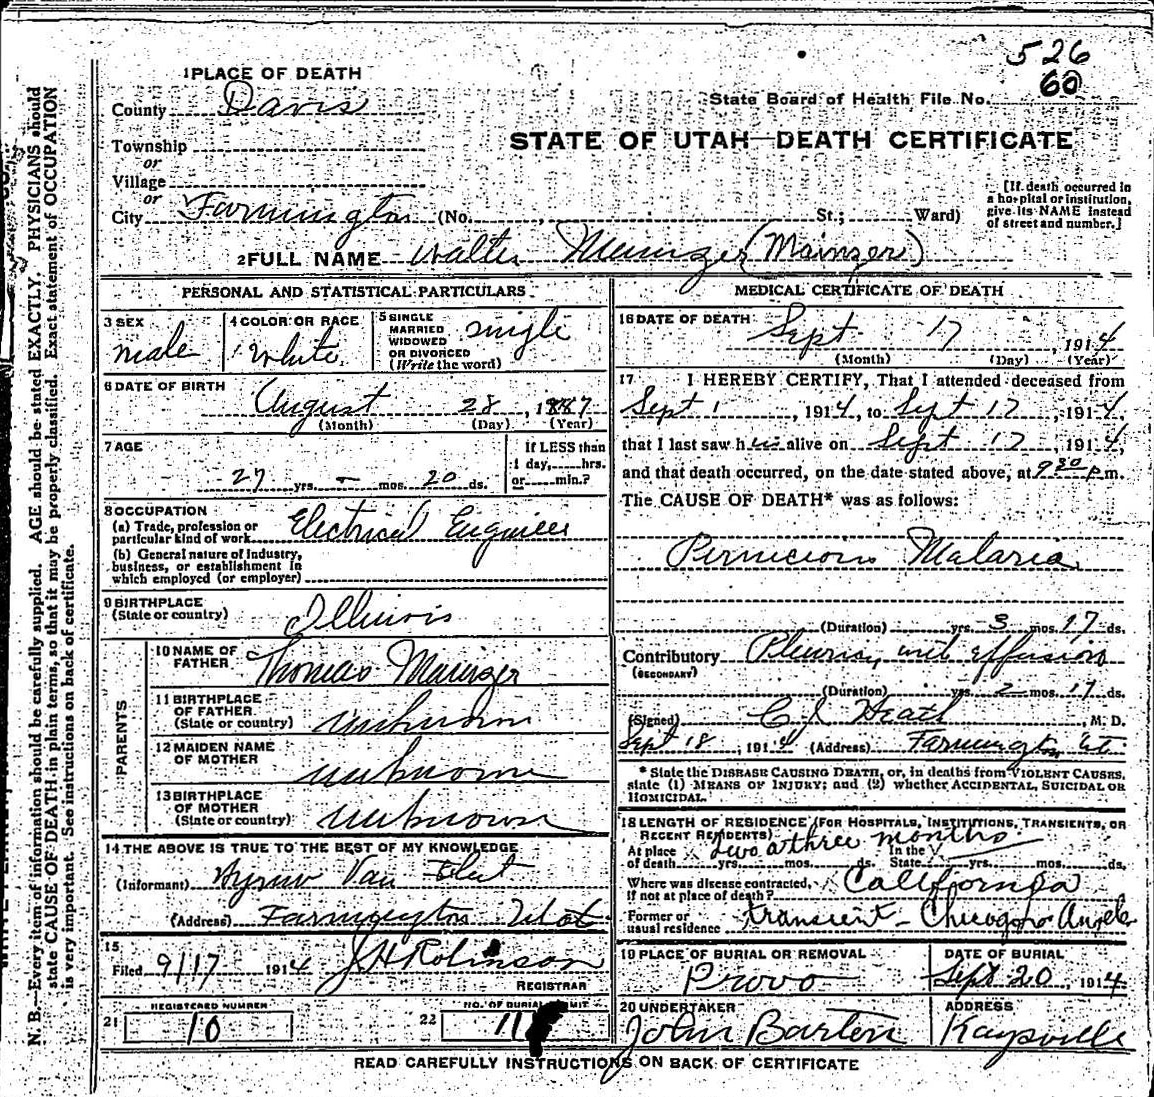 526
60
1 PLACE OF DEATH
County Davis
State Board of Health File No.
STATE OF UTAH—DEATH CERTIFICATE
Township
or
Village
or
City Farmington (No. , St.; Ward)
[If death occurred in a hospital or institution, give its NAME instead of street and number.]
2 FULL NAME Walter Munzer (Mainzer)
PERSONAL AND STATISTICAL PARTICULARS
3 SEX
male
4 COLOR OR RACE
White
5 SINGLE MARRIED WIDOWED OR DIVORCED (Write the word)
single
6 DATE OF BIRTH
August 28, 1887
(Month) (Day) (Year)
7 AGE
27 yrs. – mos. 20 ds.
If LESS than 1 day, hrs. or min.?
8 OCCUPATION
(a) Trade, profession or particular kind of work Electrical Engineer
(b) General nature of Industry, business, or establishment in which employed (or employer)
9 BIRTHPLACE
(State or country) Illinois
PARENTS
10 NAME OF FATHER Thomas Mainzer
11 BIRTHPLACE OF FATHER (State or country) unknown
12 MAIDEN NAME OF MOTHER unknown
13 BIRTHPLACE OF MOTHER (State or country) unknown
14 THE ABOVE IS TRUE TO THE BEST OF MY KNOWLEDGE
(Informant) Hyrum Van Fleet
(Address) Farmington Utah
15
Filed 9/17 1914 J H Robinson
REGISTRAR
REGISTERED NUMBER
21 10
NO. OF BURIAL PERMIT
22 11
MEDICAL CERTIFICATE OF DEATH
16 DATE OF DEATH Sept 17, 1914
(Month) (Day) (Year)
17 I HEREBY CERTIFY, That I attended deceased from
Sept 1, 1914, to Sept 17, 1914,
that I last saw him alive on Sept 17, 1914,
and that death occurred, on the date stated above, at 9 30 p.m.
The CAUSE OF DEATH* was as follows:
Pernicious Malaria
(Duration) yrs. 3 mos. 17 ds.
Contributory Pleurisy with effusion
(SECONDARY)
(Duration) yrs. 2 mos. 17 ds.
(Signed) C J Heath, M. D.
Sept 18, 1914 (Address) Farmington Ut.
* State the DISEASE CAUSING DEATH, or, in deaths from VIOLENT CAUSES, state (1) MEANS OF INJURY; and (2) whether ACCIDENTAL, SUICIDAL OR HOMICIDAL.
18 LENGTH OF RESIDENCE (FOR HOSPITALS, INSTITUTIONS, TRANSIENTS, OR RECENT RESIDENTS)
At place of death two or three months yrs. mos. ds. In the State yrs. mos. ds.
Where was disease contracted, if not at place of death? California
Former or usual residence transient - Chicago or Angeles
19 PLACE OF BURIAL OR REMOVAL
Provo
DATE OF BURIAL
Sept 20, 1914
20 UNDERTAKER
John Barton
ADDRESS
Kaysville
READ CAREFULLY INSTRUCTIONS ON BACK OF CERTIFICATE
N. B.—Every item of information should be carefully supplied. AGE should be stated EXACTLY. PHYSICIANS should
state CAUSE OF DEATH in plain terms, so that it may be properly classified. Exact statement of OCCUPATION
is very important. See instructions on back of certificate.